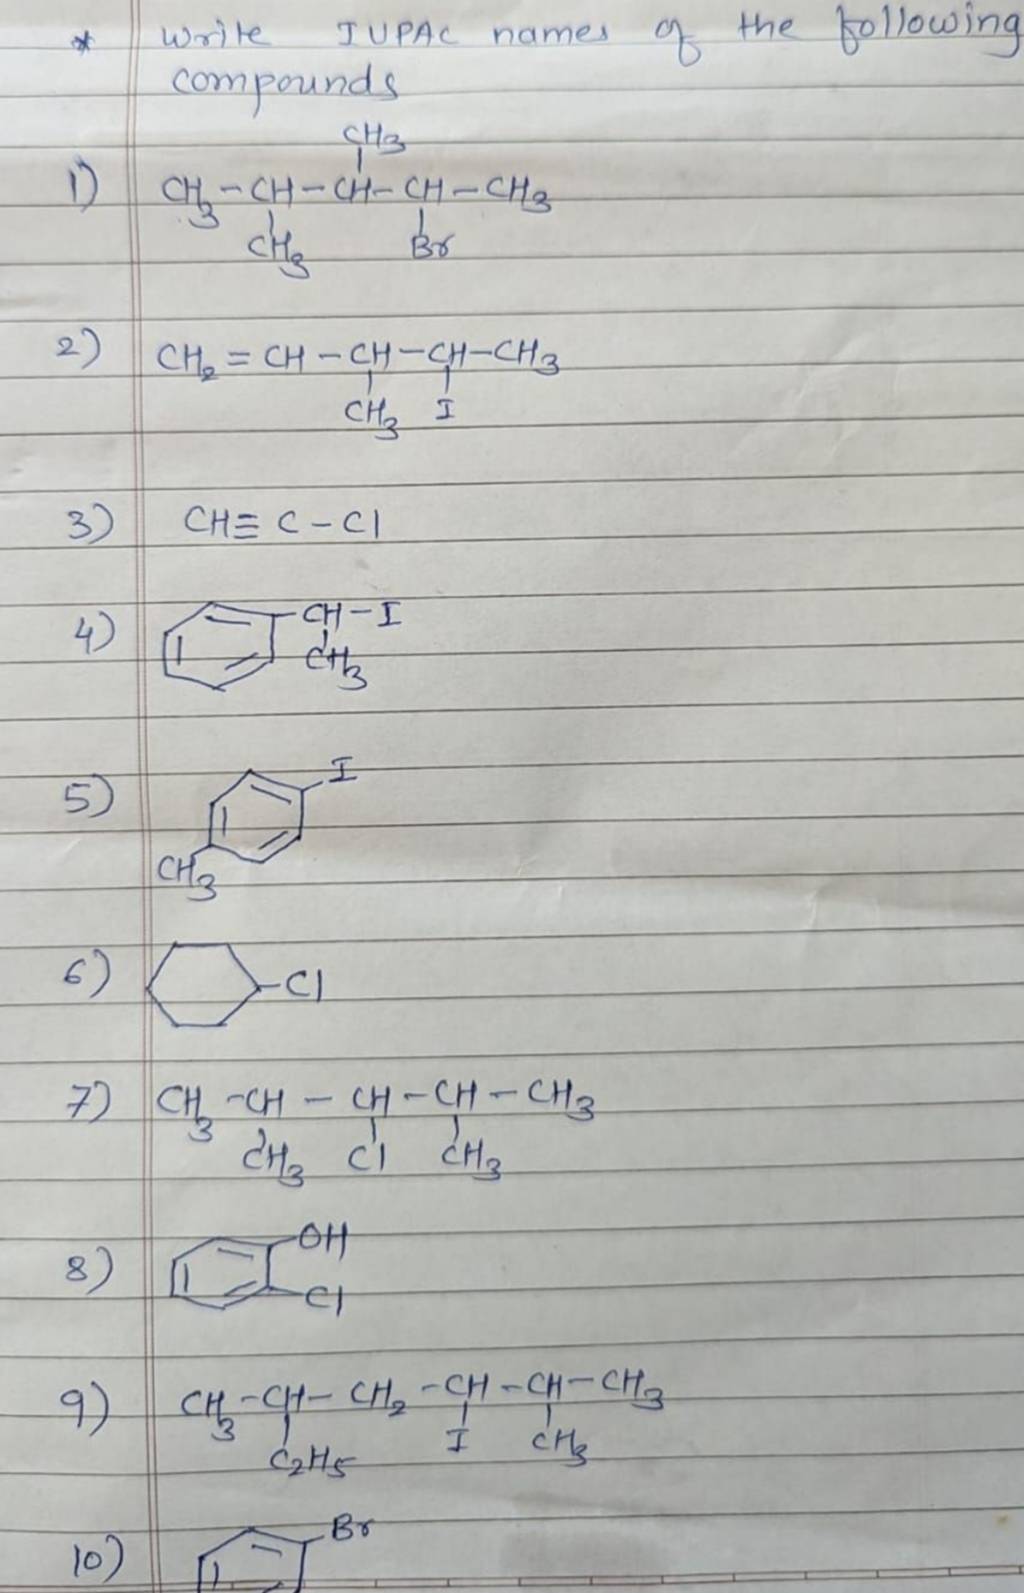 * Write IUPAC names of the following
compounds
CH3
1) CH3-CH-CH-CH-CH3
CH3 Br
2) CH2=CH-CH-CH-CH3
CH3 I
3) CH≡C-Cl
4) CH-I
CH3
5) I
CH3
6) Cl
7) CH3-CH-CH-CH-CH3
CH3 Cl CH3
8) OH
Cl
9) CH3-CH-CH2-CH-CH-CH3
C2H5 I CH3
10) Br